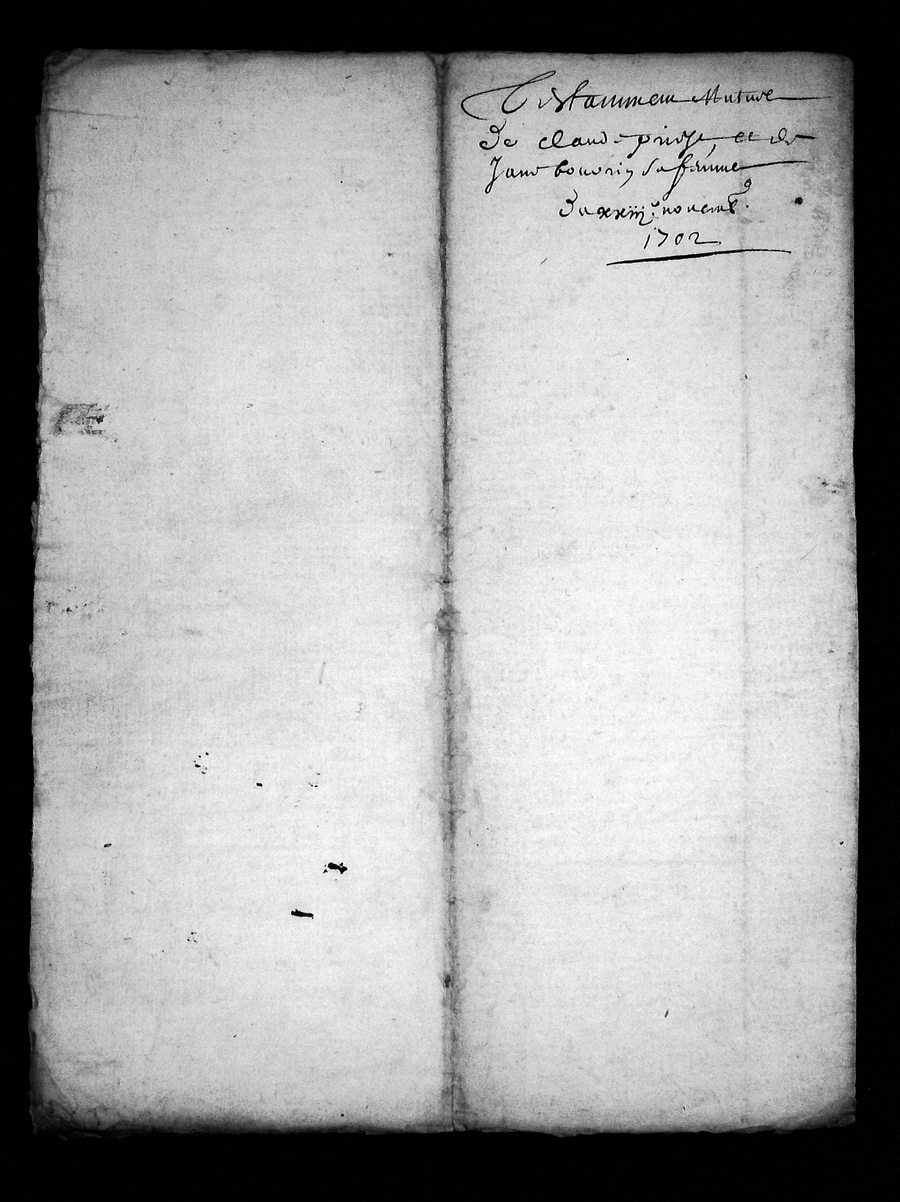 Testammen Mutuel
De claude priost, et de
Jane bouvrin sa femme
Du xxiij.e novemb.
1702